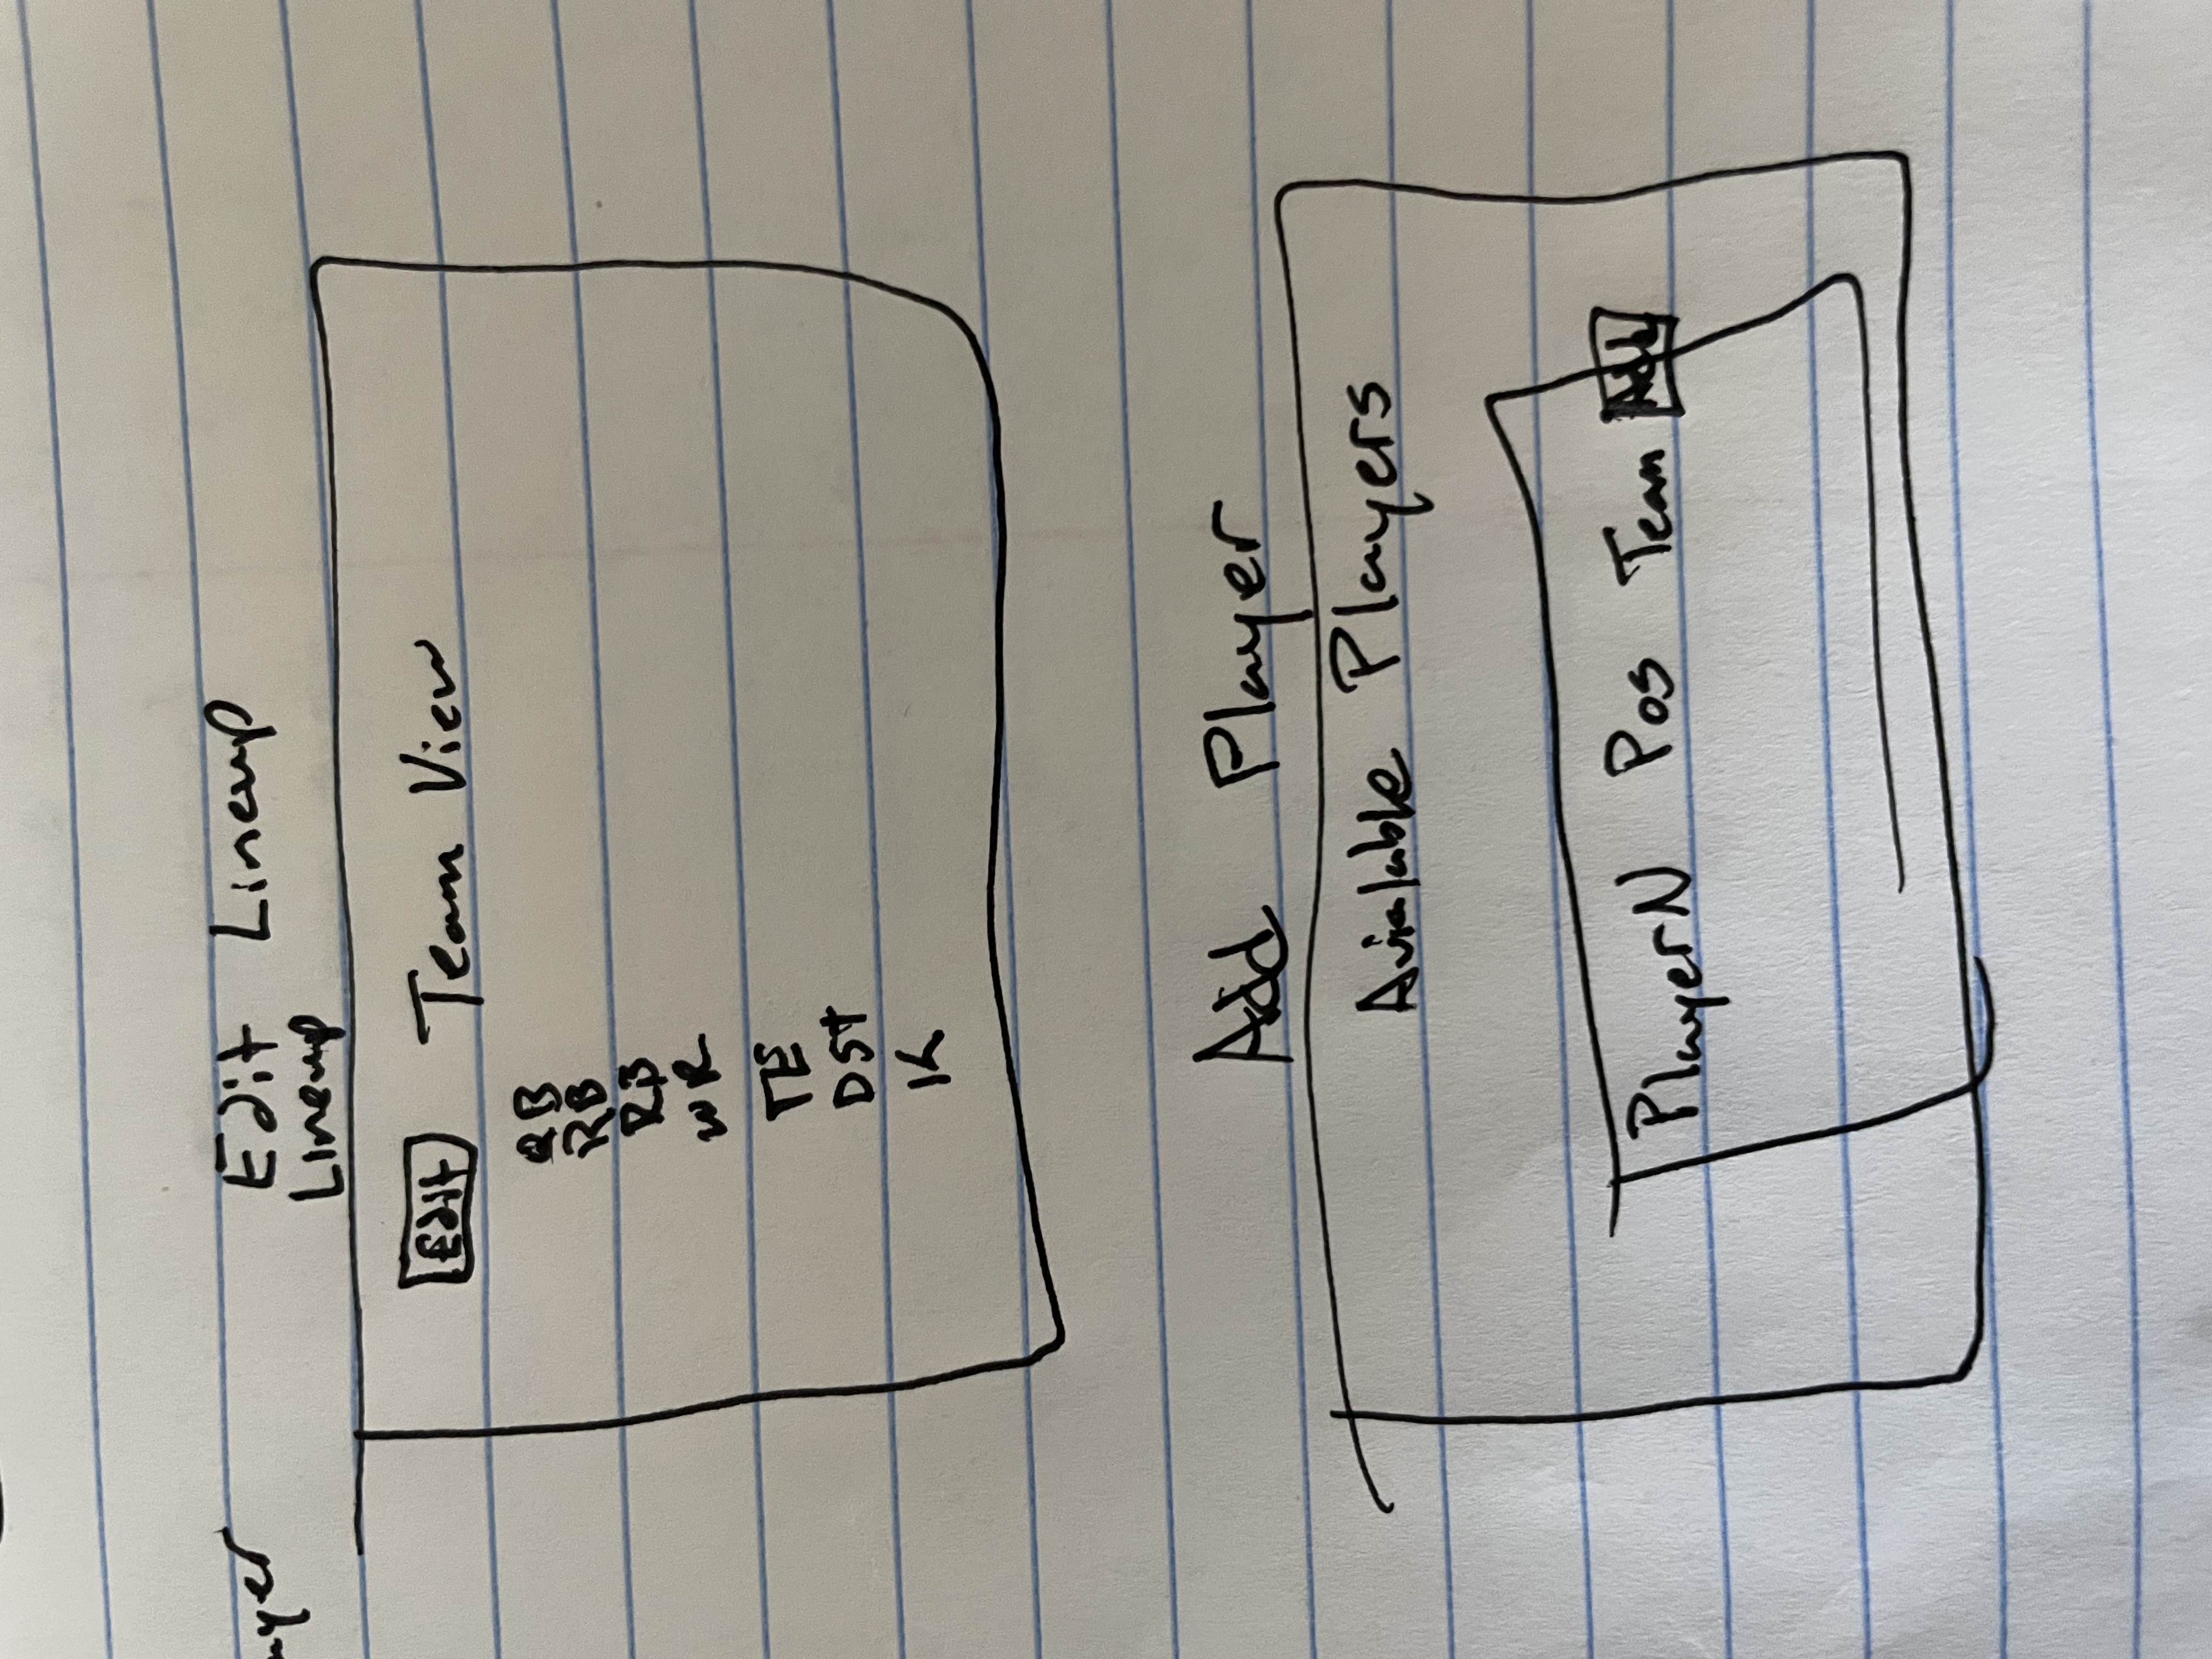 Edit Lineup
Lineup
Edit Team View
QB
RB
RB
WR
TE
DST
K
Add Player
Avialable Players
PlayerN Pos Team Add